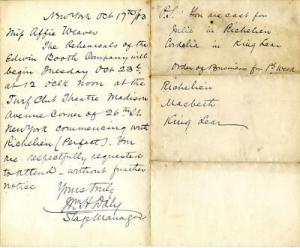 New York Oct 17th/83
Miss Affie Weaver
The Rehearsals of the
Edwin Booth Company will
begin Tuesday Oct 23d
at 12 o'clk noon at the
Turf Club Theatre Madison
Avenue corner of 26th St
New York commencing with
Richelieu (Perfect). You
are respectfully requested
to attend - without further
notice
Yours truly
Wm H Daly
Stage Manager
P.S. You are cast for
Julie in Richelieu
Cordelia in King Lear
Order of Business for 1st Week
Richelieu
Macbeth
King Lear